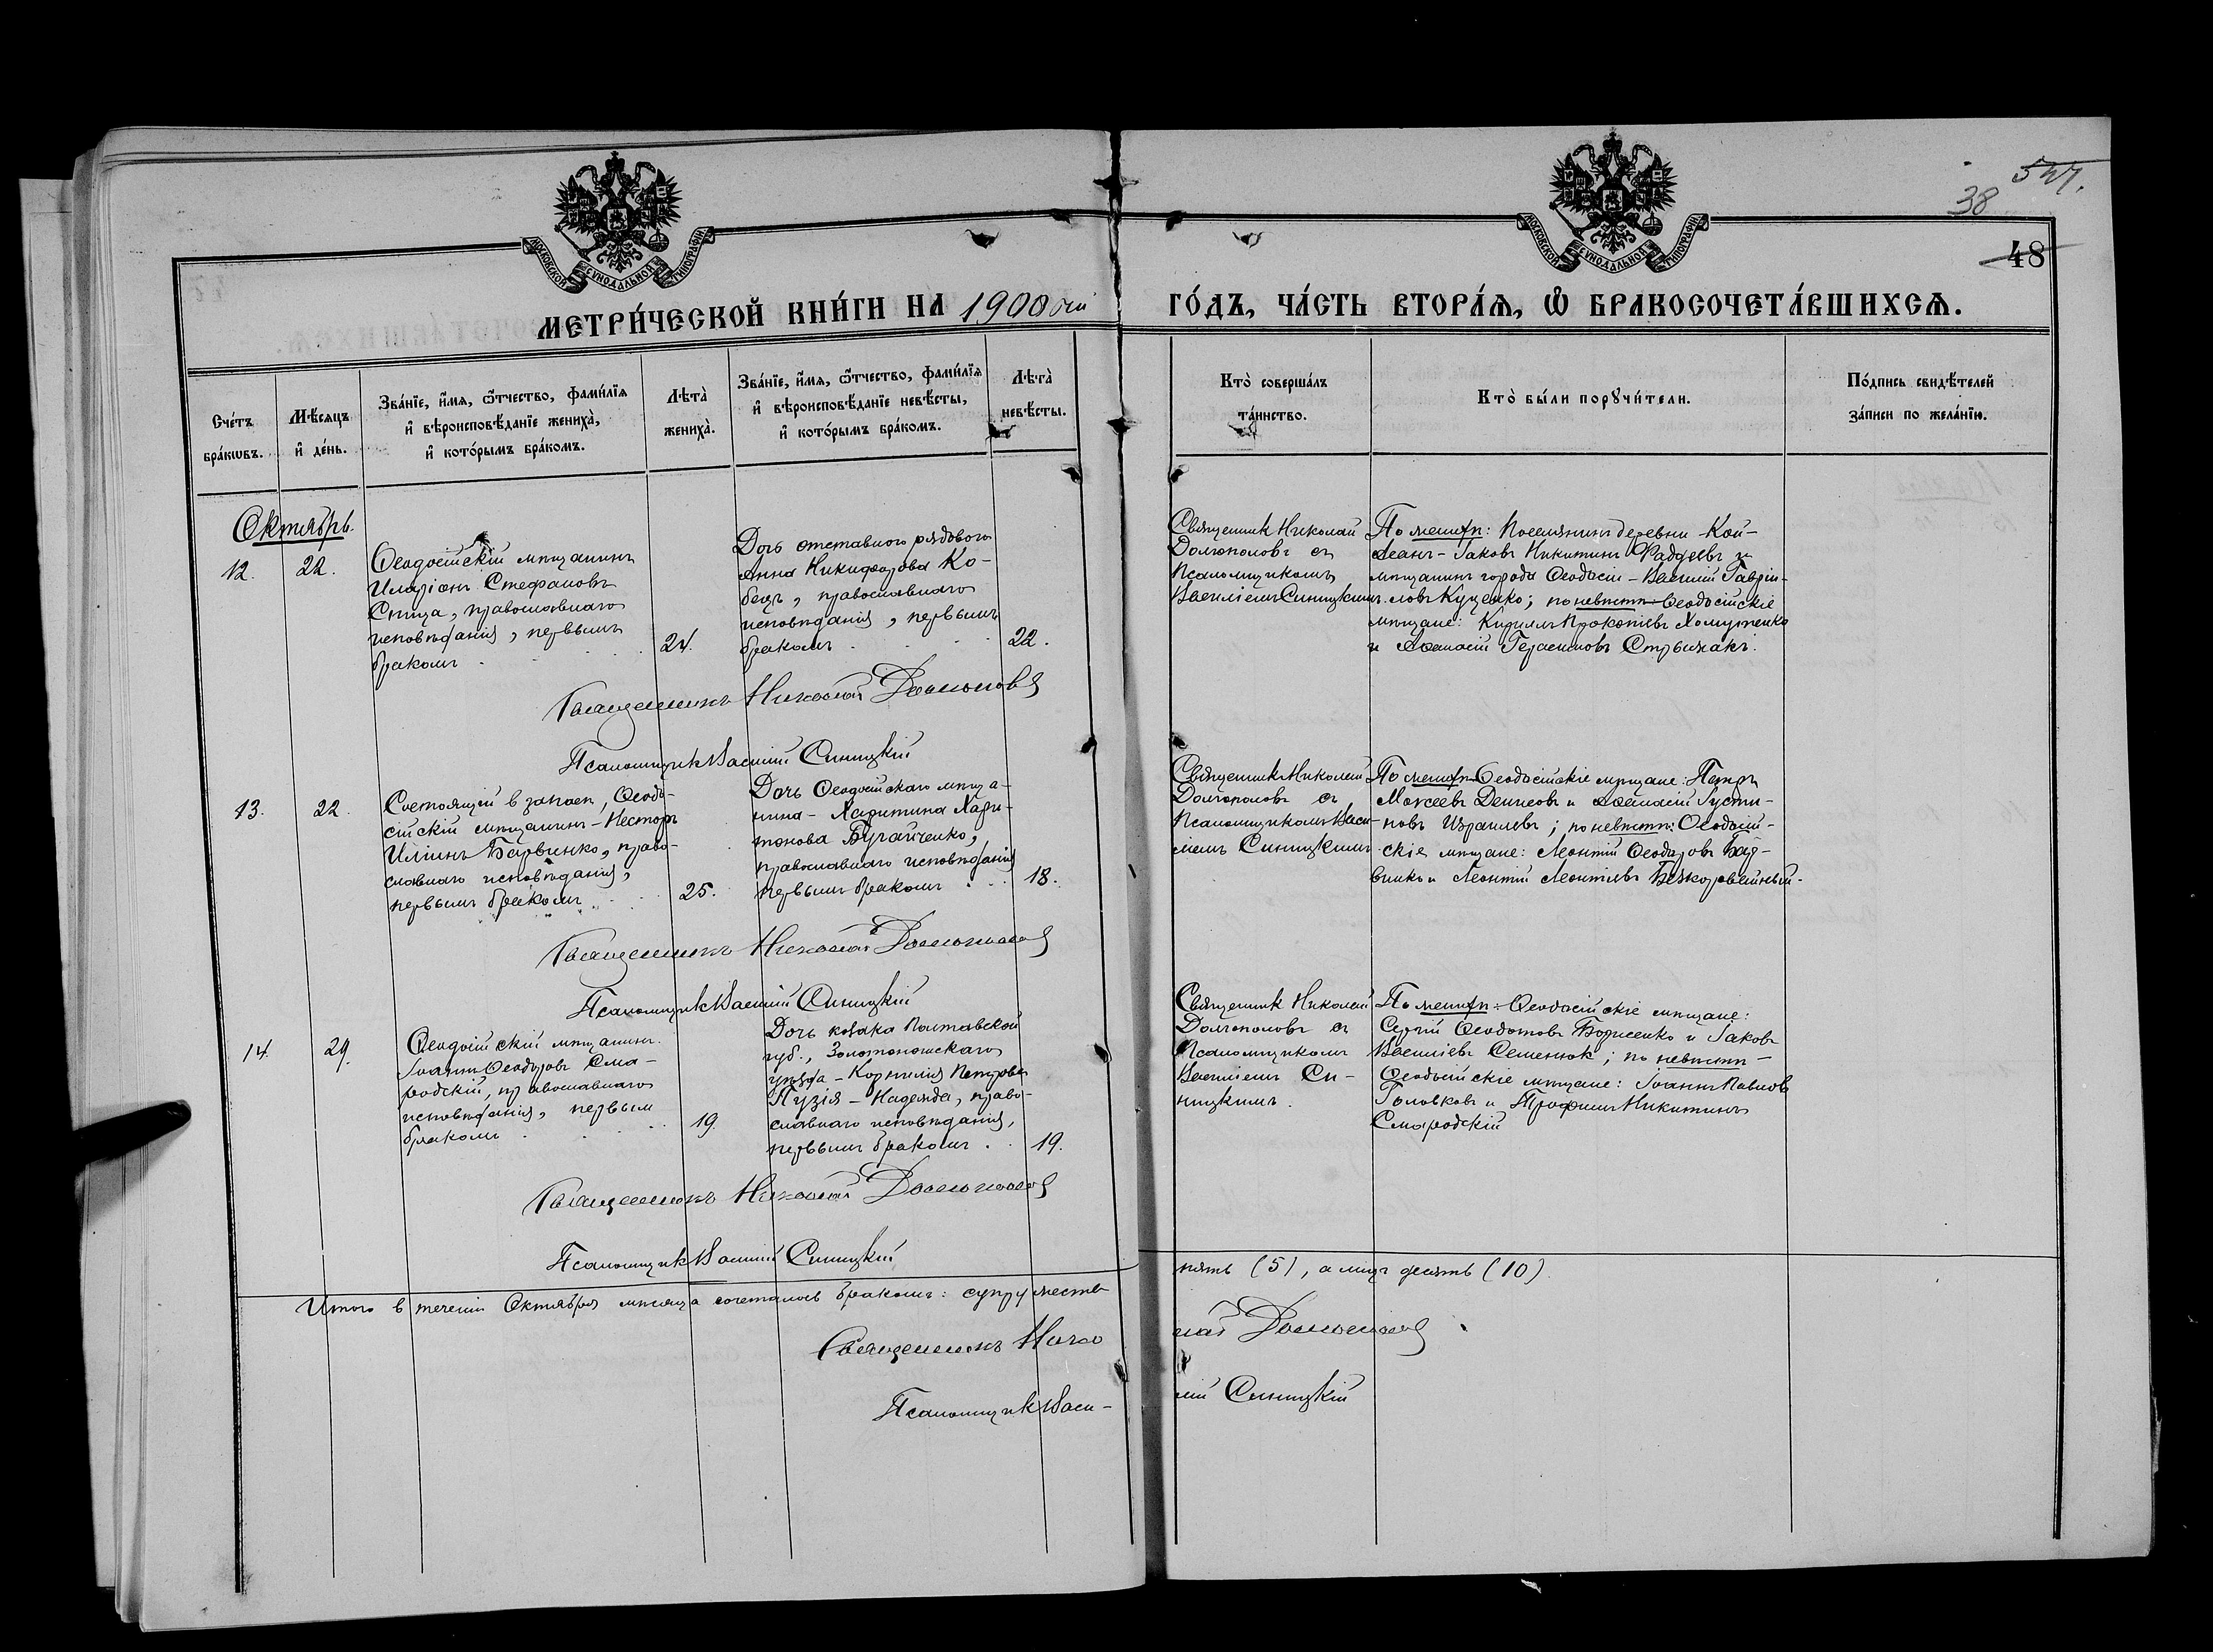 547.
38
48
МОСКОВСКОЙ СѴНОДАЛЬНОЙ ТИПОГРАФІИ
МОСКОВСКОЙ СѴНОДАЛЬНОЙ ТИПОГРАФІИ
МЕТРИ́ЧЕСКОЙ КНИ́ГИ НА 1900 ый
ГО́ДЪ, ЧА́СТЬ ВТОРА́Ѧ, Ѽ БРАКОСОЧЕТА́ВШИХСѦ.
Сче́тъ
бра́кѡвъ.
Мѣ́сѧцъ
и҆ де́нь.
Зва́нїе, и҆́мѧ, ѻ҆́тчество, фами́лїѧ
и҆ вѣроисповѣ́данїе жениха̀,
и҆ кото́рымъ бра́комъ.
Лѣта̀
жениха̀.
Зва́нїе, и҆́мѧ, ѻ҆́тчество, фами́лїѧ
и҆ вѣроисповѣ́данїе невѣ́сты,
и҆ кото́рымъ бра́комъ.
Лѣта̀
невѣ́сты.
Кто̀ соверша́лъ
та́инство.
Кто̀ бы́ли порꙋчи́тели.
По́дпись свидѣ́телей
за́писи по жела́нїю.
Октябрь.
12.
22.
Ѳеодосійскій мѣщанинъ
Иларіонъ Стефановъ
Спица, православнаго
исповѣданія, первымъ
бракомъ
24.
Дочь отставного рядового
Анна Никифорова Ко-
бецъ, православнаго
исповѣданія, первымъ
бракомъ
22.
Священник Николай
Долгополовъ съ
Псаломщикомъ
Василіемъ Синицкимъ.
По женихѣ: Поселянинъ деревни Кой-
Асанъ - Іаковъ Никитинъ Фаддеевъ и
мѣщанинъ города Ѳеодосіи - Василій Гаврии-
ловъ Куценко; по невѣстѣ: Ѳеодосійскіе
мѣщане: Кириллъ Прокопіевъ Хомутенко
и Аѳанасій Герасимовъ Стрыжакъ.
Священникъ Николай Долгополовъ
Псаломщик Василій Синицкій
13.
22.
Состоящій в запасѣ, Ѳеодо-
сійскій мѣщанинъ - Несторъ
Иліинъ Барвинко, право-
славнаго исповѣданія,
первымъ бракомъ
25.
Дочь Ѳеодосійскаго мѣща-
нина - Харитина Хари-
тонова Бугайченко,
православнаго исповѣданія
первымъ бракомъ
18.
Священник Николай
Долгополовъ съ
Псаломщикомъ Васи-
ліемъ Синицкимъ
По женихѣ: Ѳеодосійскіе мѣщане: Петръ
Моисеевъ Денисовъ и Аѳанасій Густи-
новъ Израилевъ; по невѣстѣ: Ѳеодосій-
скіе мѣщане: Леонтій Ѳеодоровъ Бар-
винко и Леонтій Леонтіевъ Безкоровайный.
Священникъ Николай Долгополовъ
Псаломщик Василій Синицкій
14.
29.
Ѳеодосійскій мѣщанинъ
Іоаннъ Ѳеодоровъ Сма-
родскій, православнаго
исповѣданія, первым
бракомъ
19.
Дочь козака Полтавской
губ., Золотоношскаго
уѣзда - Корнилія Петрова
Пузія - Надежда, право-
славнаго исповѣданія,
первымъ бракомъ
19.
Священник Николай
Долгополовъ съ
Псаломщикомъ
Василіемъ Си-
ницкимъ.
По женихѣ: Ѳеодосійскіе мѣщане:
Сергій Ѳеодотовъ Борисенко и Іаковъ
Василіевъ Семенюк; по невѣстѣ -
Ѳеодосійскіе мѣщане: Іоаннъ Павловъ
Головковъ и Трофимъ Никитинъ
Смародскій
Священникъ Николай Долгополовъ
Псаломщик Василій Синицкій
Итого в теченіи Октября мѣсяца сочеталось бракомъ: супружествъ пять (5), а лицъ десять (10).
Священникъ Николай Долгополовъ
Псаломщик Василій Синицкій